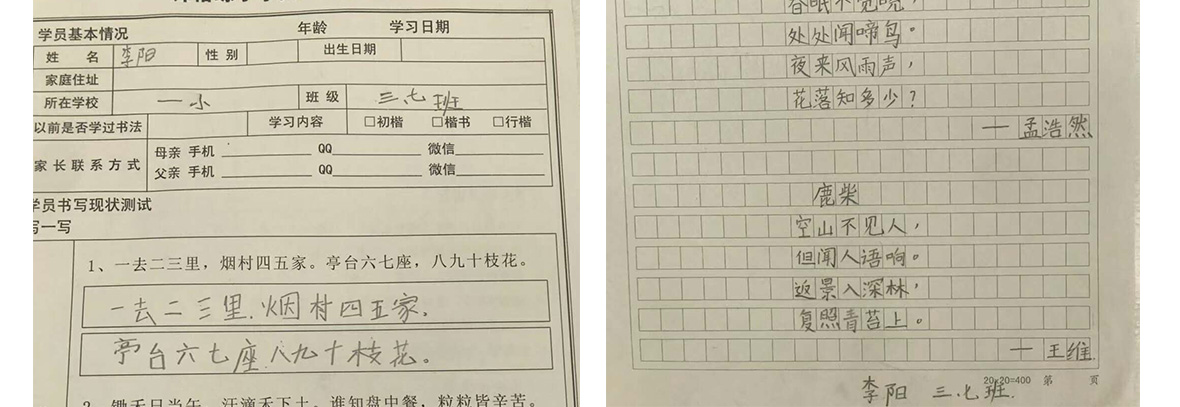 学员基本情况 年龄 学习日期
姓 名 李阳 性 别 出生日期
家庭住址
所在学校 一小 班 级 三.七班
以前是否学过书法 学习内容 □初楷 □楷书 □行楷
家长联系方式 母亲 手机 QQ 微信
父亲 手机 QQ 微信
学员书写现状测试
写一写
1、一去二三里，烟村四五家。亭台六七座，八九十枝花。
一去二三里.烟村四五家.
亭台六七座.八九十枝花。
2、锄禾日当午，汗滴禾下土。谁知盘中餐，粒粒皆辛苦。
春眠不觉晓，
处处闻啼鸟。
夜来风雨声，
花落知多少？
— 孟浩然
鹿柴
空山不见人，
但闻人语响。
返景入深林，
复照青苔上。
— 王维
20×20=400 第 页
李阳 三.七班.